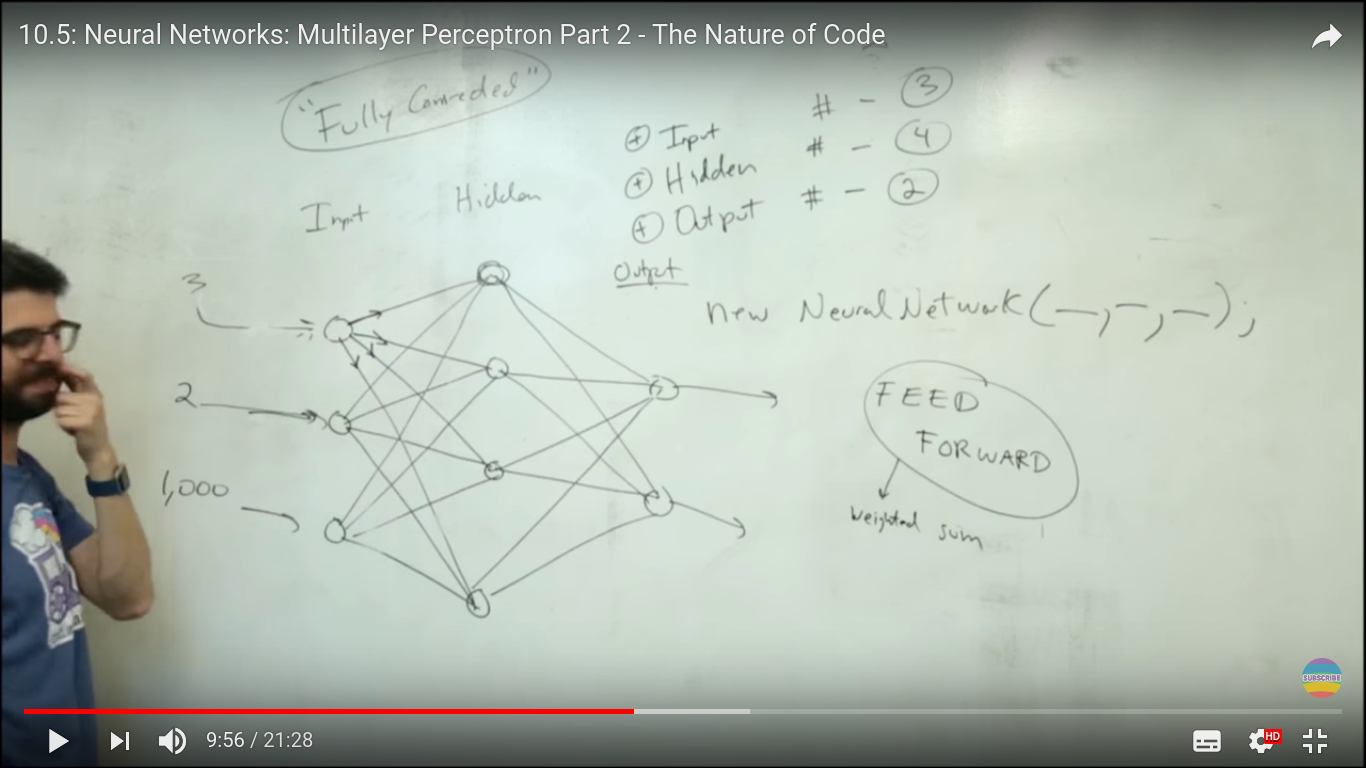 10.5: Neural Networks: Multilayer Perceptron Part 2 - The Nature of Code
"Fully Connected"
# - 3
+ Input # - 4
+ Hidden # - 2
+ Output
Input Hidden Output
3
new NeuralNetwork(—,—,—);
2
FEED
FORWARD
1,000
weighted sum
SUBSCRIBE
9:56 / 21:28
HD